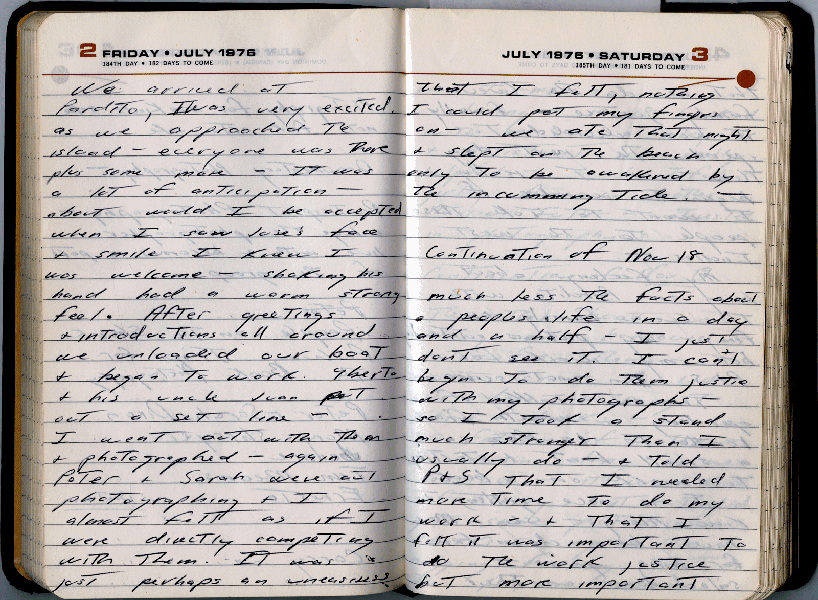 2 FRIDAY • JULY 1976
184TH DAY • 182 DAYS TO COME
We arrived at
Pardito, I was very excited.
as we approached The
island - everyone was There
plus some more - IT was
a lot of anticipation -
about would I be accepted
when I saw Jose's face
+ smile I knew I
was welcome - shaking his
hand had a warm strong
feel. After greetings
+ introductions all around
we unloaded our boat
+ began To work. Yberto
+ his uncle Juan put
out a set line -
I went out with Them
+ photographed - again
Peter + Sarah were out
photographing + I
almost felt as if I
were directly competing
with Them. IT was
just perhaps an uneasiness
JULY 1976 • SATURDAY 3
185TH DAY • 181 DAYS TO COME
that I felt, nothing
I could put my fingers
on - we ate That night
+ slept on The beach
only To be awakened by
The incumming Tide. -
Continuation of Nov 18
much less The facts about
a peoples life in a day
and a half - I just
dont see it. I can't
begin To do Them justice
with my photographs -
so I Took a stand
much stronger Than I
usually do - + Told
P+S That I needed
more Time To do my
work - + That I
felt it was important To
do The work justice
but more important